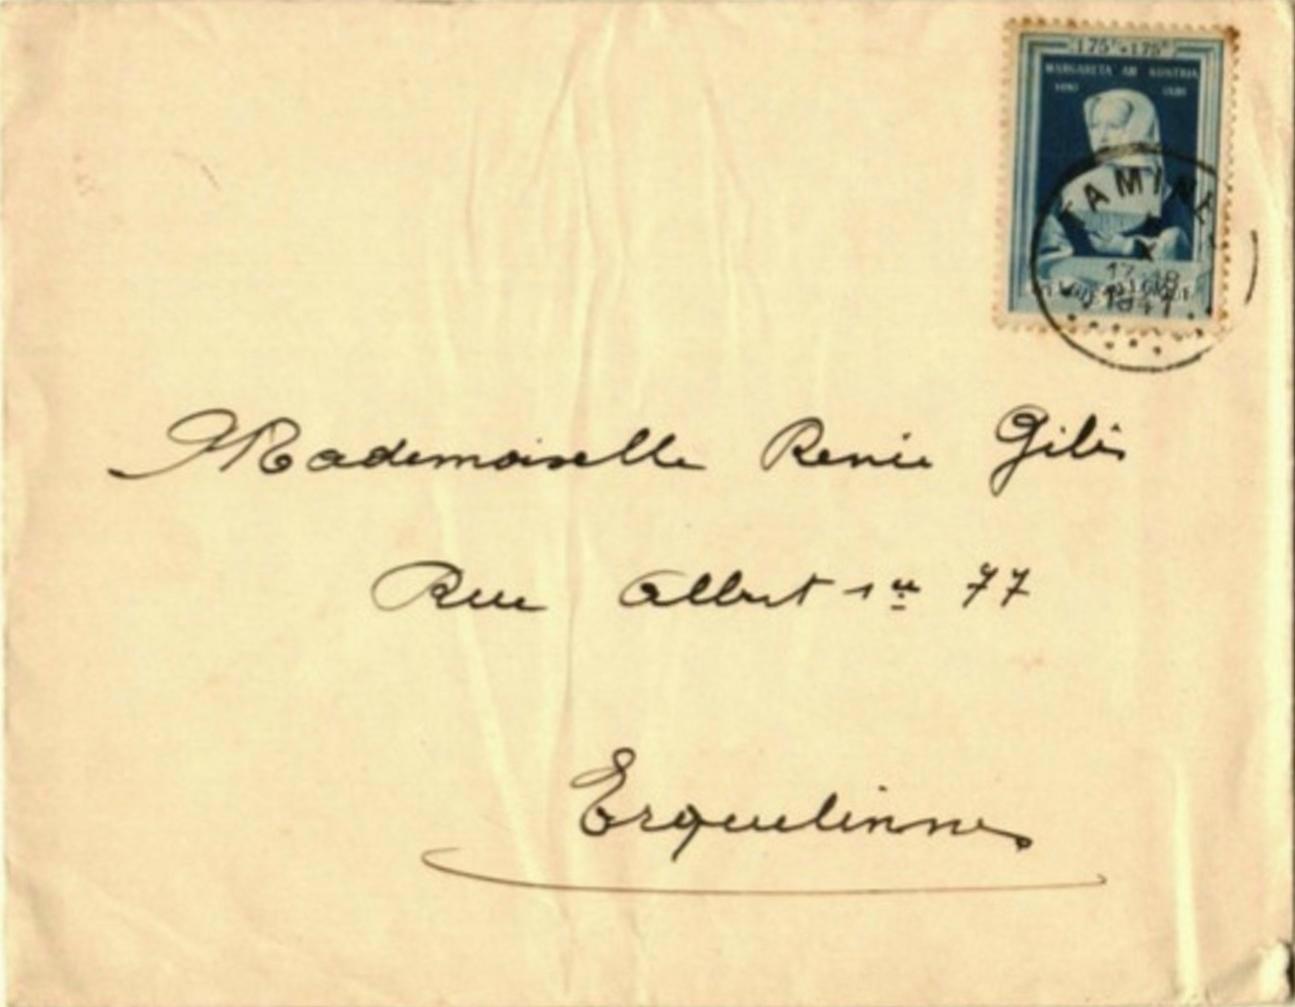 1 75 + 1 75
MARGARETA AB AUSTRIA
1480 1530
TAMINES
X
17-18
1941
Mademoiselle Renée Gilès
Rue Albert 1er 77
Erquelinnes